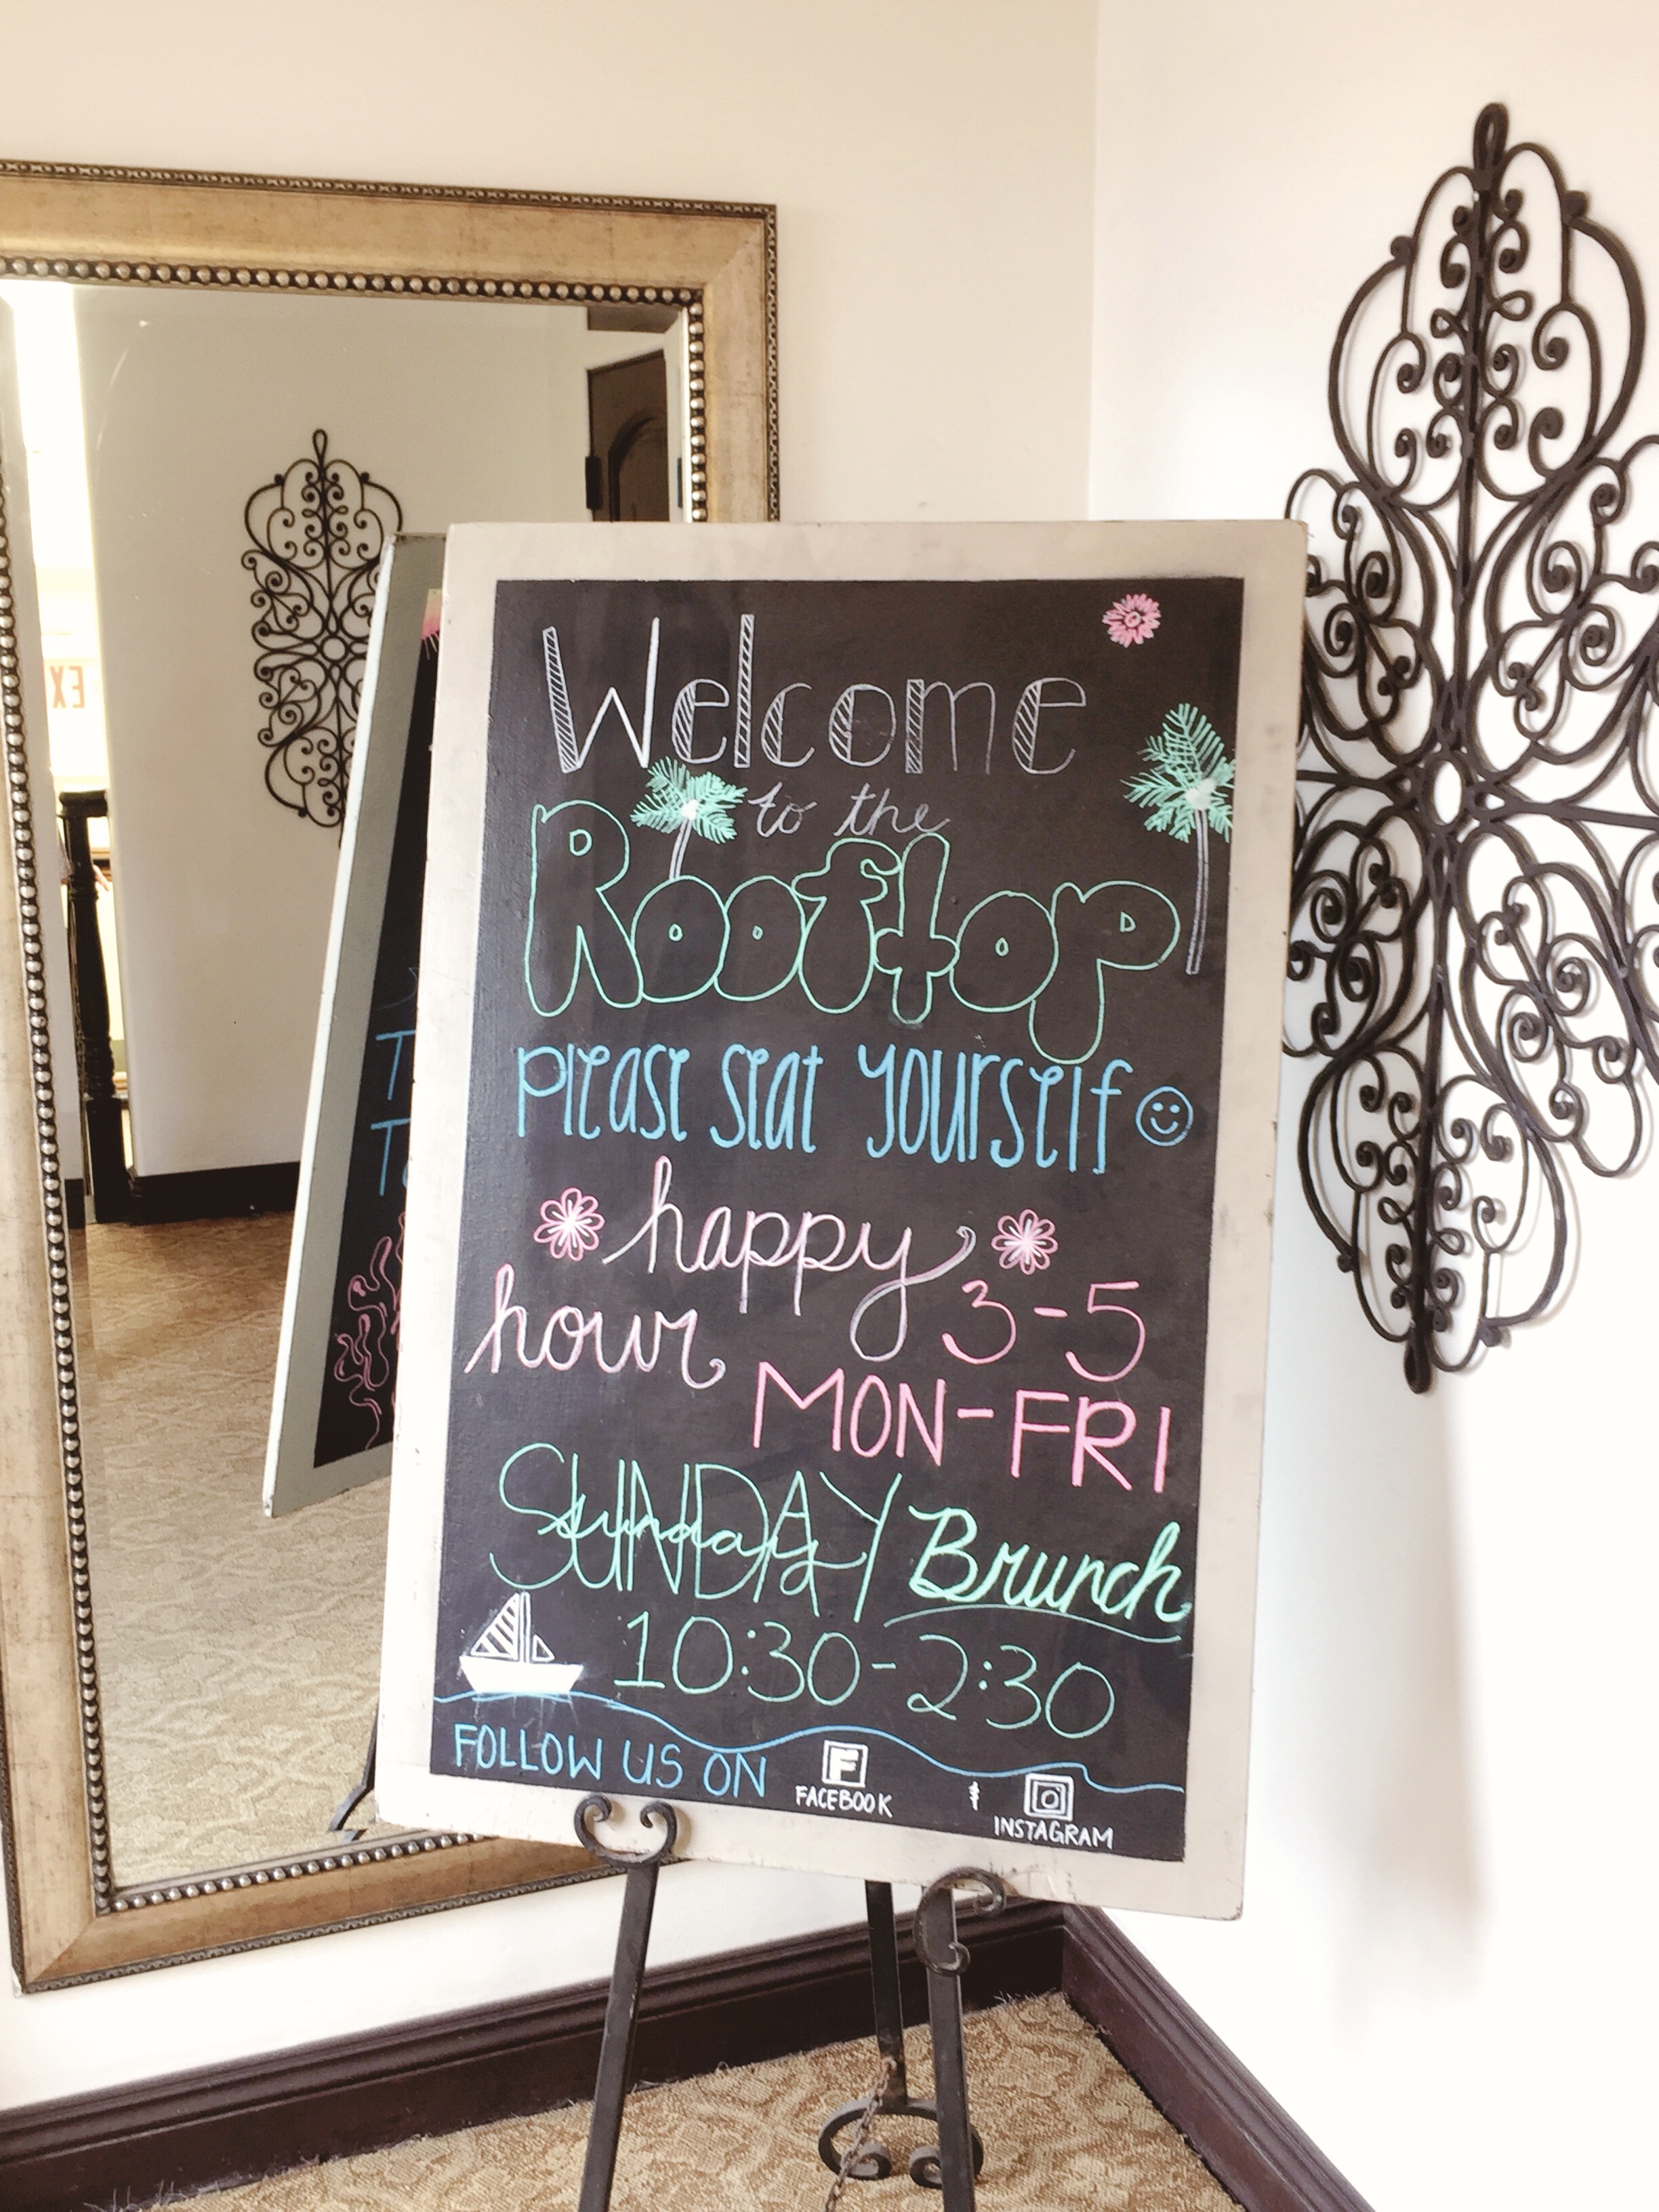 Welcome
to the
Rooftop
please seat yourself
happy
hour 3-5
MON-FRI
SUNDAY Brunch
10:30-2:30
FOLLOW US ON
FACEBOOK
INSTAGRAM
EX
T